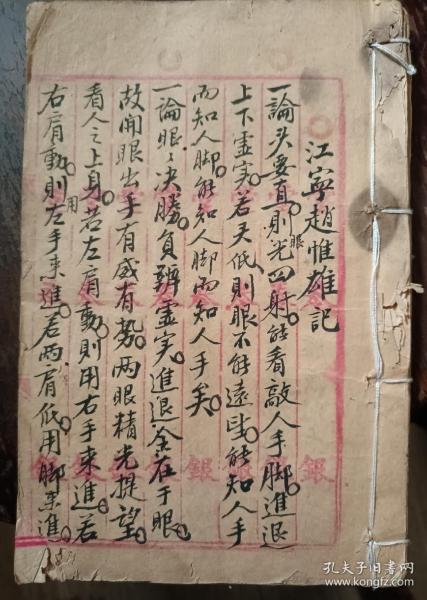 江寧趙惟雄記
一論头要直則眼光四射能看敵人手脚進退
上下虛实若天低則眼不能遠望能知人手
而知人脚能知人脚而知人手矣
一論眼之决勝負辨虛实進退全在于眼
故開眼出手有威有势两眼精光提望
看人之上身若左肩動則用右手来進若
右肩動則用左手来進若两肩低用脚来進
銀
銀
銀
孔夫子旧书网
www.kongfz.com